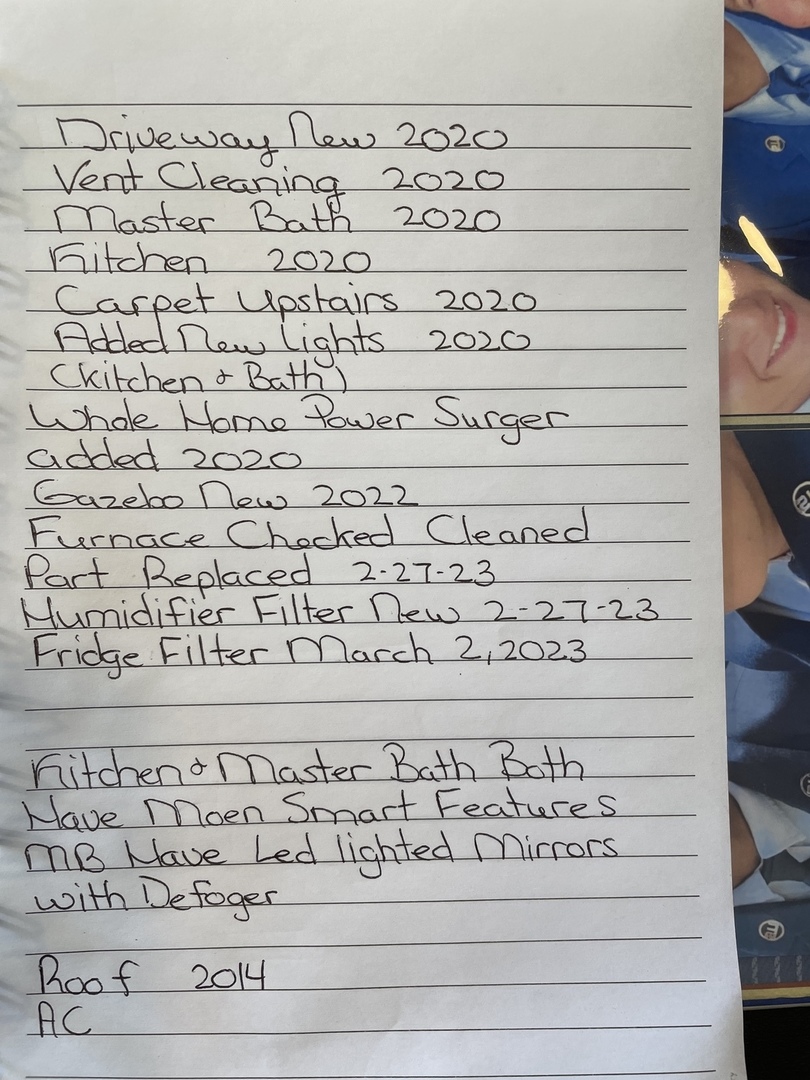 Driveway New 2020
Vent Cleaning 2020
Master Bath 2020
Kitchen 2020
Carpet Upstairs 2020
Added New Lights 2020
(Kitchen & Bath)
Whole Home Power Surger
added 2020
Gazebo New 2022
Furnace Checked Cleaned
Part Replaced 2-27-23
Humidifier Filter New 2-27-23
Fridge Filter March 2, 2023
Kitchen & Master Bath Both
Have Moen Smart Features
MB Have Led lighted Mirrors
with Defoger
Roof 2014
AC